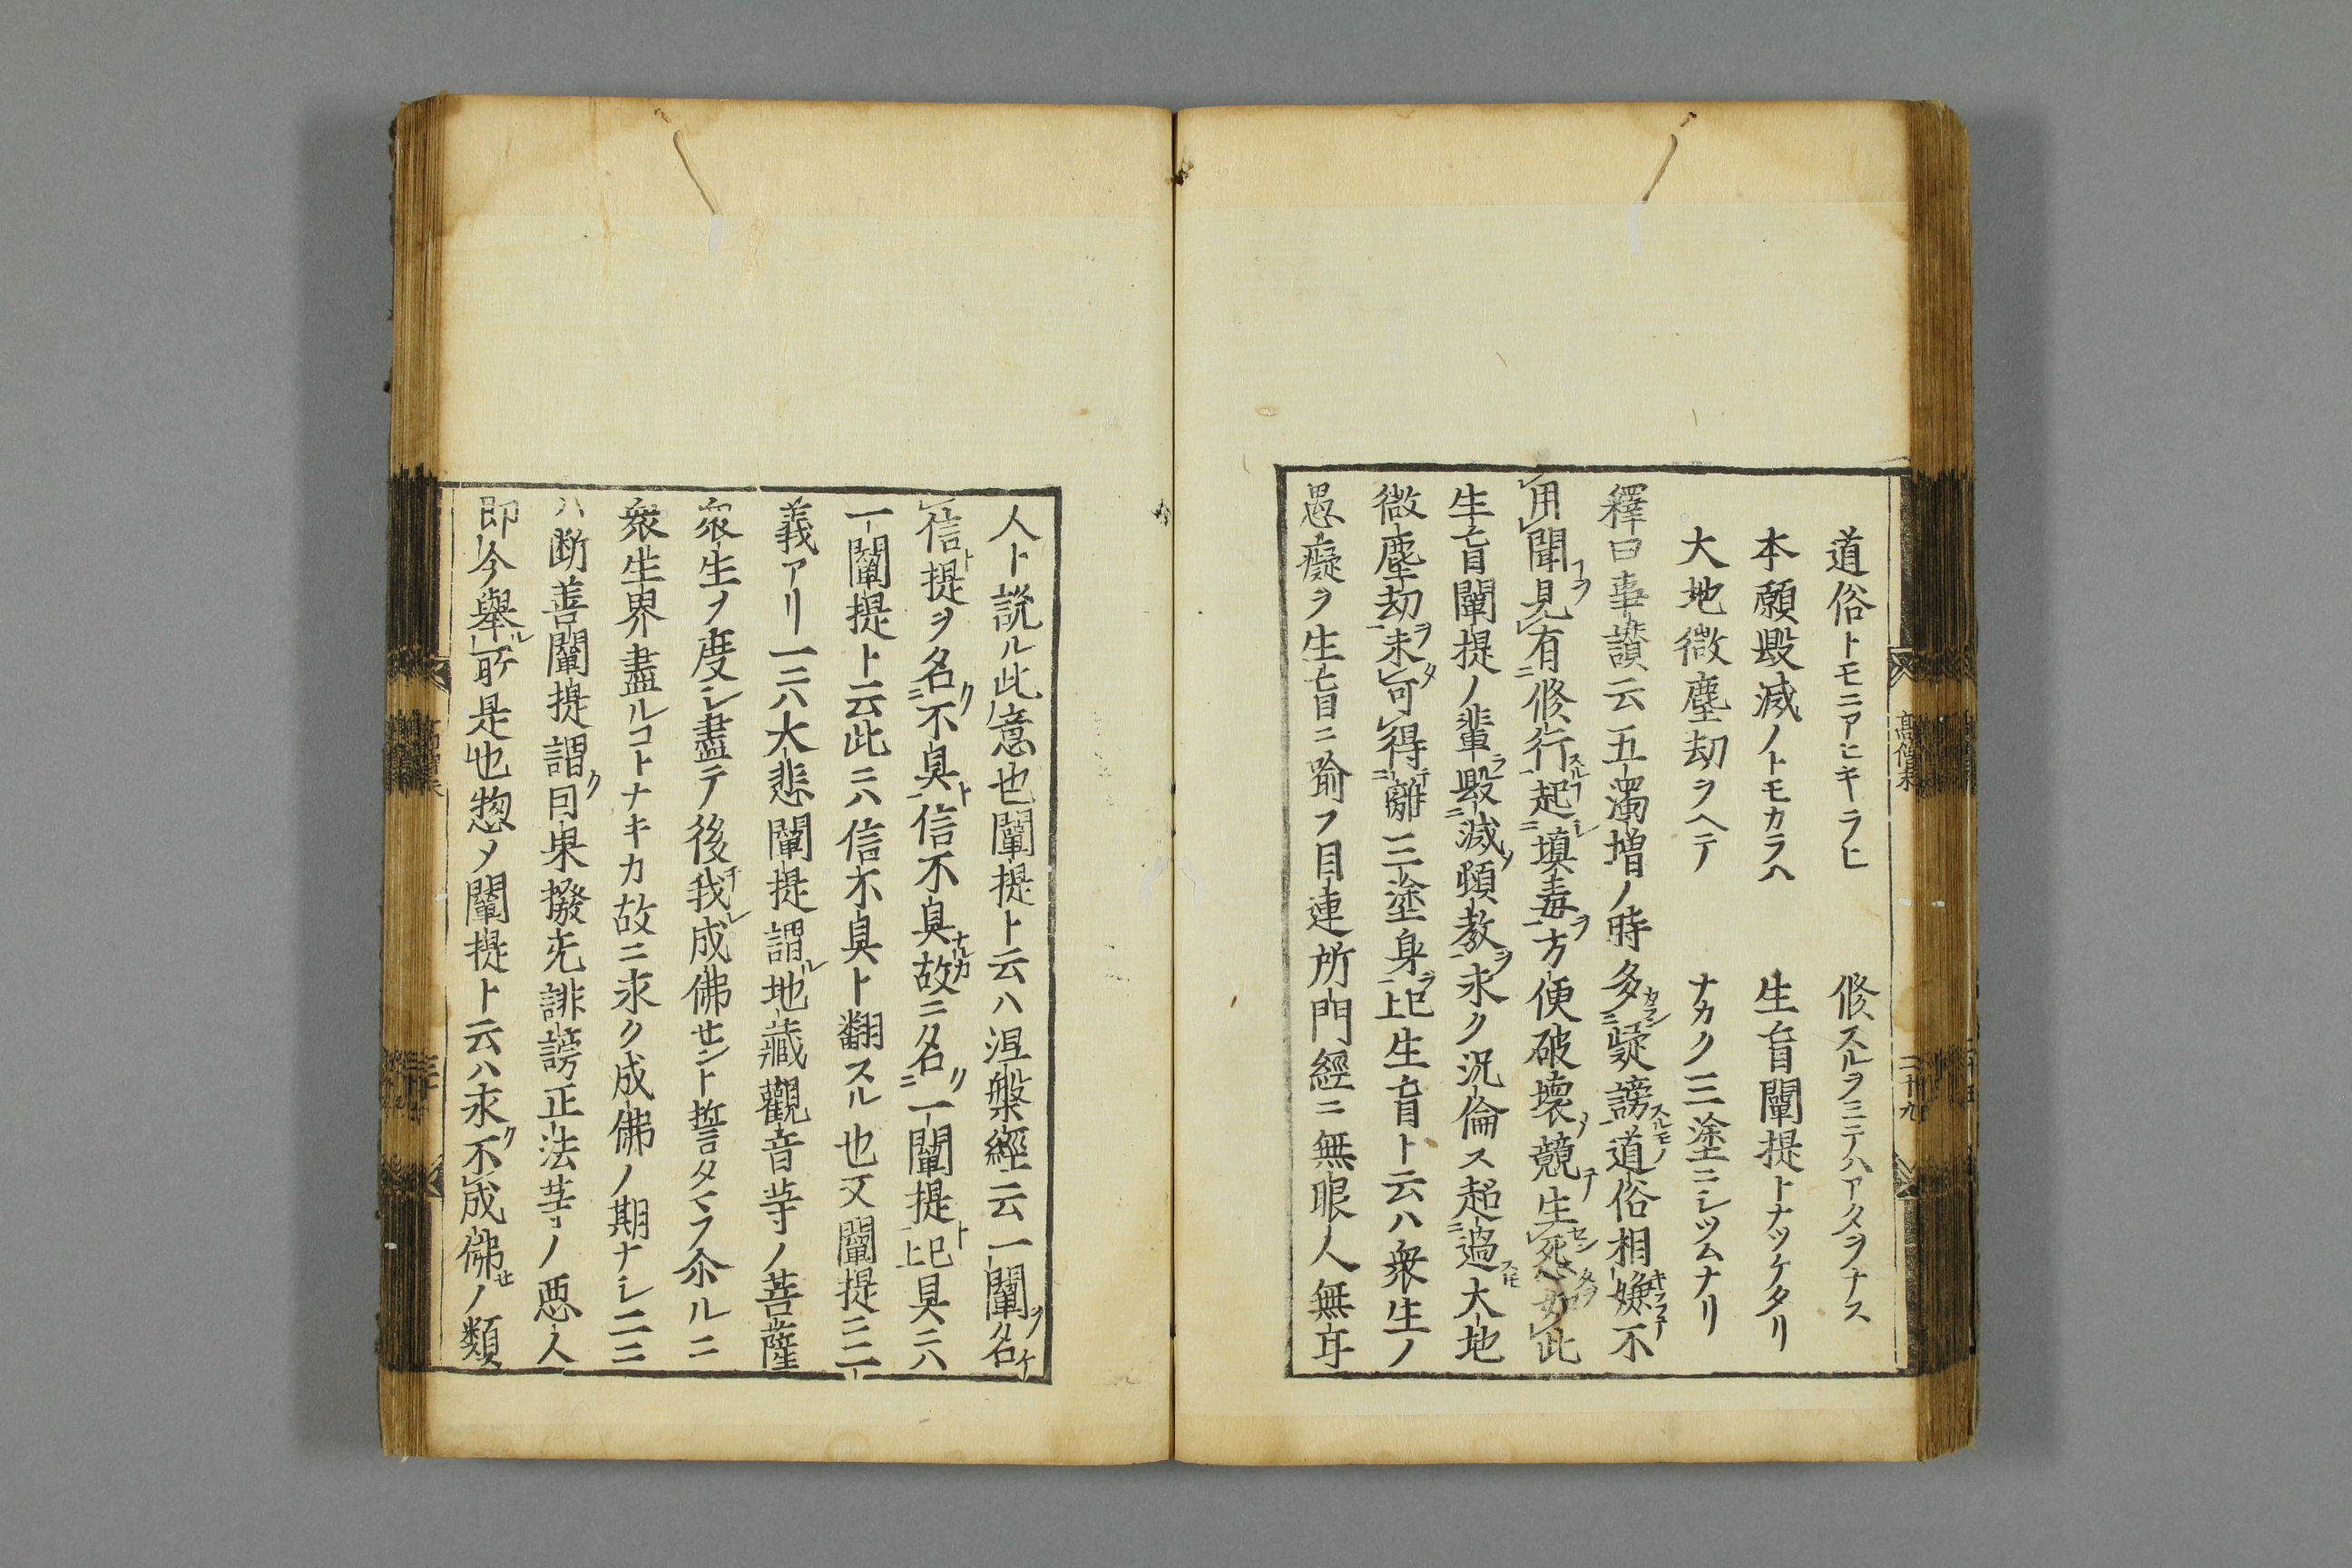 道俗トモニアヒキラヒ 修スルヲミテハアタヲナス
本願毀滅ノトモカラハ 生盲闡提トナツケタリ
大地微塵劫ヲヘテ ナカク三塗ニシツムナリ
釋曰事讃云五濁増ノ時多疑謗道俗相嫌不
用聞見有修行起塡毒方便破壞競生怨如此
生盲闡提ノ輩毀滅頓教永ク沉倫ス超過大地
微塵劫未可得離三塗身已上生盲ト云ハ衆生ノ
愚癡ヲ生盲ニ喩フ目連所門經ニ無眼人無耳
高僧末
二十九
人ト説ル此意也闡提ト云ハ涅槃經云一闡名
信提ヲ名不具信不具故ニ名一闡提已上具ニハ
一闡提ト云此ニハ信不具ト翻スル也又闡提ニ二
義アリ一ニハ大悲闡提謂地藏觀音等ノ菩薩
衆生ヲ度シ盡テ後我成佛セント誓タマフ尒ルニ
衆生界盡ルコトナキカ故ニ永ク成佛ノ期ナシ二ニ
ハ断善闡提謂因果撥无誹謗正法等ノ悪人
即今舉所是也惣メ闡提ト云ハ永不成佛ノ類